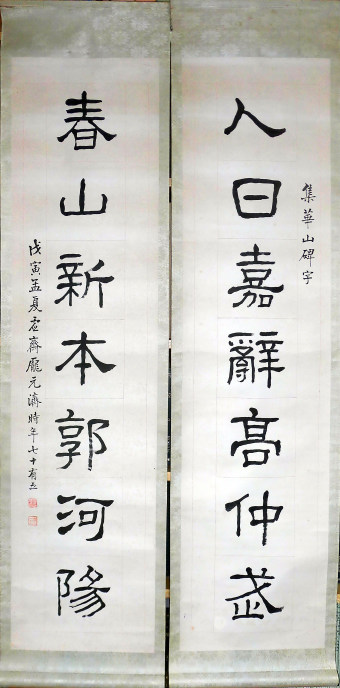 集華山碑字
人日嘉辭高仲武
春山新本郭河陽
戊寅孟夏虛齋龐元濟時年七十有五